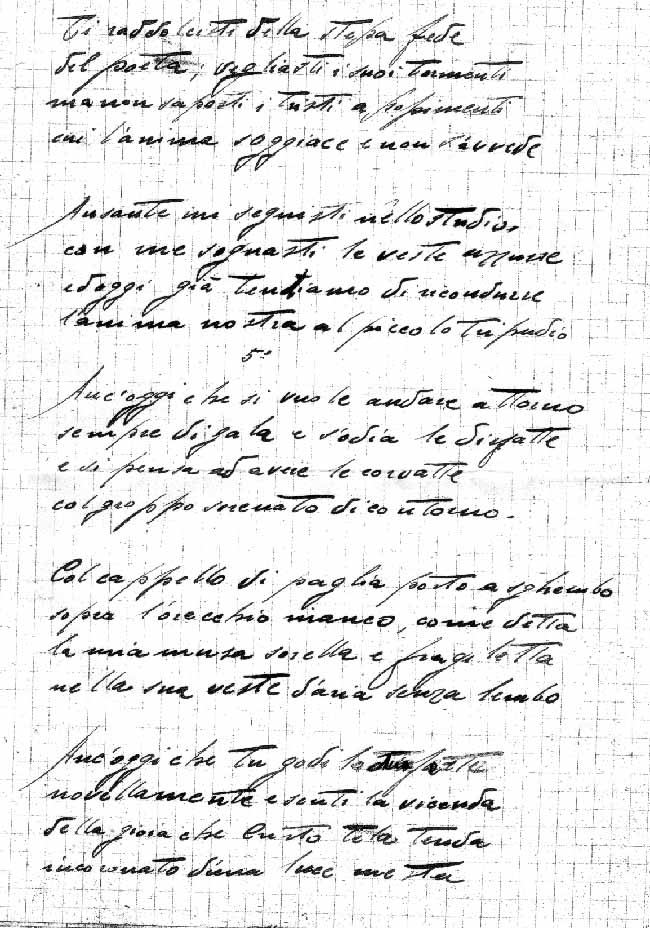 Ti raddolcisti della stessa fede
del poeta; vegliasti i suoi tormenti
ma non sapesti i tristi
cui l'anima soggiace e non s'avvede
Ansante mi seguisti nello studio,
con me sognasti le veste azzurre
ed oggi già tentiamo di ricondurre
l'anima nostra al piccolo tripudio
5°
Anc'oggi che si vuole andare attorno
sempre di gala e s'odia le disfatte
e si pensa ad avere le corvatte
col groppo svenato di contorno.
Col cappello di paglia posto a sghembo
sopra l'orecchio manco, come detta
la mia musa sorella e fragiletta
nella sua veste d'aria senza lembo
Anc'oggi che tu godi le
novellamente e senti la vicenda
della gioia che Cristo te la tenda
incoronato d'una luce mesta